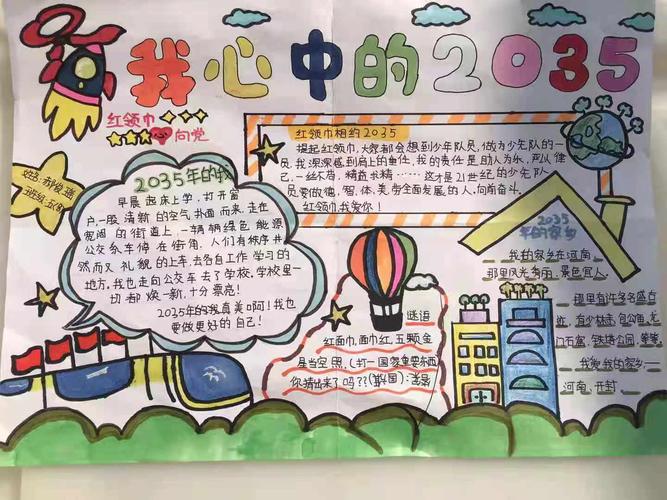 我心中的2035
红领巾
向党
姓名:郝俊瑶
班级:五(8)
2035年的我
早晨起床上学,打开窗
户,一股清新的空气扑面而来,走在
宽阔的街道上,一辆辆绿色能源
公交车停在街角,人们有秩序井
然而又礼貌的上车,去各自工作学习的
地方,我也走向公交车去了学校,学校里一
切都焕一新,十分漂亮!
2035年的我真美啊!我也
要做更好的自己!
红领巾相约2035
提起红领巾,大家都会想到少年队员,做为少先队的一
员,我深深感到肩上的重任,我的责任是助人为乐,严以律
己,一丝不苟,精益求精……这才是21世纪的少先队
员要做德,智,体,美,劳全面发展的人,向前奋斗。
红领巾,我爱你!
谜语
红面巾,面巾红,五颗金
星当空照,(打一国家重要东西)
你猜出来了吗??
2035
年的家乡
我的家乡在河南
那里风光秀丽,景色宜人。
那里有许多名盛古
迹,有少林寺,包公庙,龙
门石窟,铁塔公园,等等
我爱我的家乡——
河南·开封